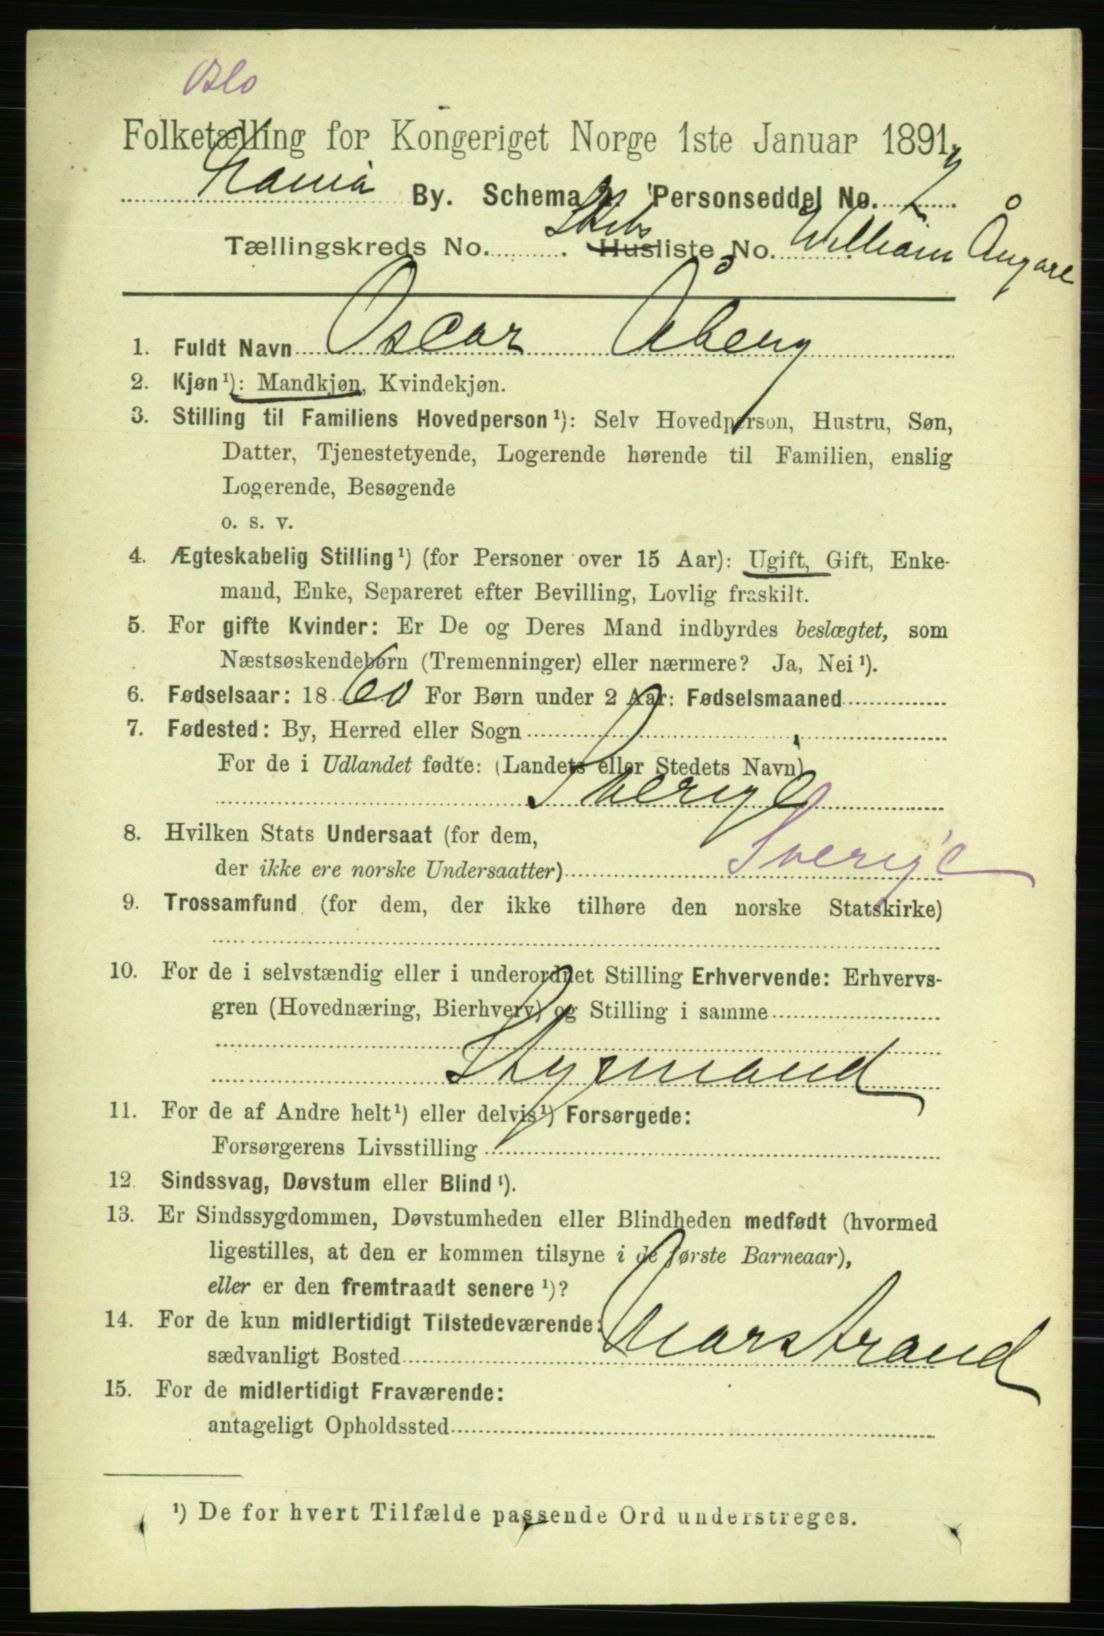 Oslo
Folketælling for Kongeriget Norge 1ste Januar 1891.
By. Schema 2. Personseddel No. 7
Tællingskreds No. . Skibs Husliste No. William Ångare
1. Fuldt Navn Oscar Åberg
2. Kjøn¹): Mandkjøn, Kvindekjøn.
3. Stilling til Familiens Hovedperson¹): Selv Hovedperson, Hustru, Søn,
Datter, Tjenestetyende, Logerende hørende til Familien, enslig
Logerende, Besøgende
o. s. v.
4. Ægteskabelig Stilling¹) (for Personer over 15 Aar): Ugift, Gift, Enke-
mand, Enke, Separeret efter Bevilling, Lovlig fraskilt.
5. For gifte Kvinder: Er De og Deres Mand indbyrdes beslægtet, som
Næstsøskendebørn (Tremenninger) eller nærmere? Ja, Nei¹).
6. Fødselsaar: 1860 For Børn under 2 Aar: Fødselsmaaned
7. Fødested: By, Herred eller Sogn
For de i Udlandet fødte: (Landets eller Stedets Navn)
Sverige
8. Hvilken Stats Undersaat (for dem,
der ikke ere norske Undersaatter) Sverige
9. Trossamfund (for dem, der ikke tilhøre den norske Statskirke)
10. For de i selvstændig eller i underordnet Stilling Erhvervende: Erhvervs-
gren (Hovednæring, Bierhverv) og Stilling i samme
Styrmand
11. For de af Andre helt¹) eller delvis¹) Forsørgede:
Forsørgerens Livsstilling
12. Sindssvag, Døvstum eller Blind¹).
13. Er Sindssygdommen, Døvstumheden eller Blindheden medfødt (hvormed
ligestilles, at den er kommen tilsyne i de første Barneaar),
eller er den fremtraadt senere¹)?
14. For de kun midlertidigt Tilstedeværende:
sædvanligt Bosted Marstrand
15. For de midlertidigt Fraværende:
antageligt Opholdssted
¹) De for hvert Tilfælde passende Ord understreges.